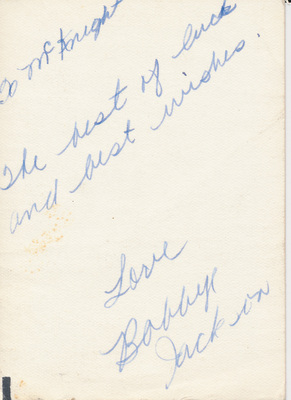 To McKnight
The best of luck
and best wishes.
Love
Bobbye
Jackson